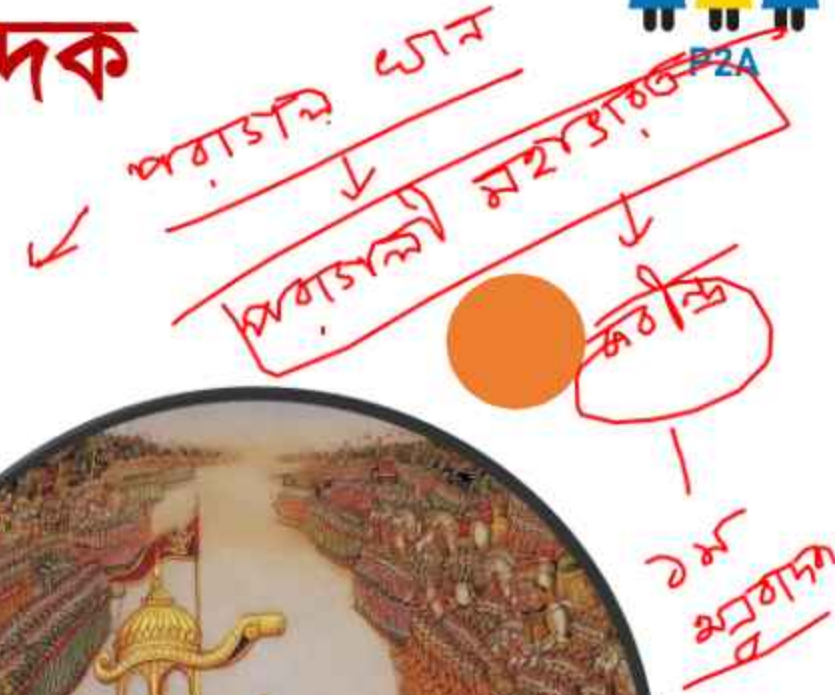 দক
P2A
পরাগল খান
পরাগলী মহাভারত
কবীন্দ্র
১ম
অনুবাদক